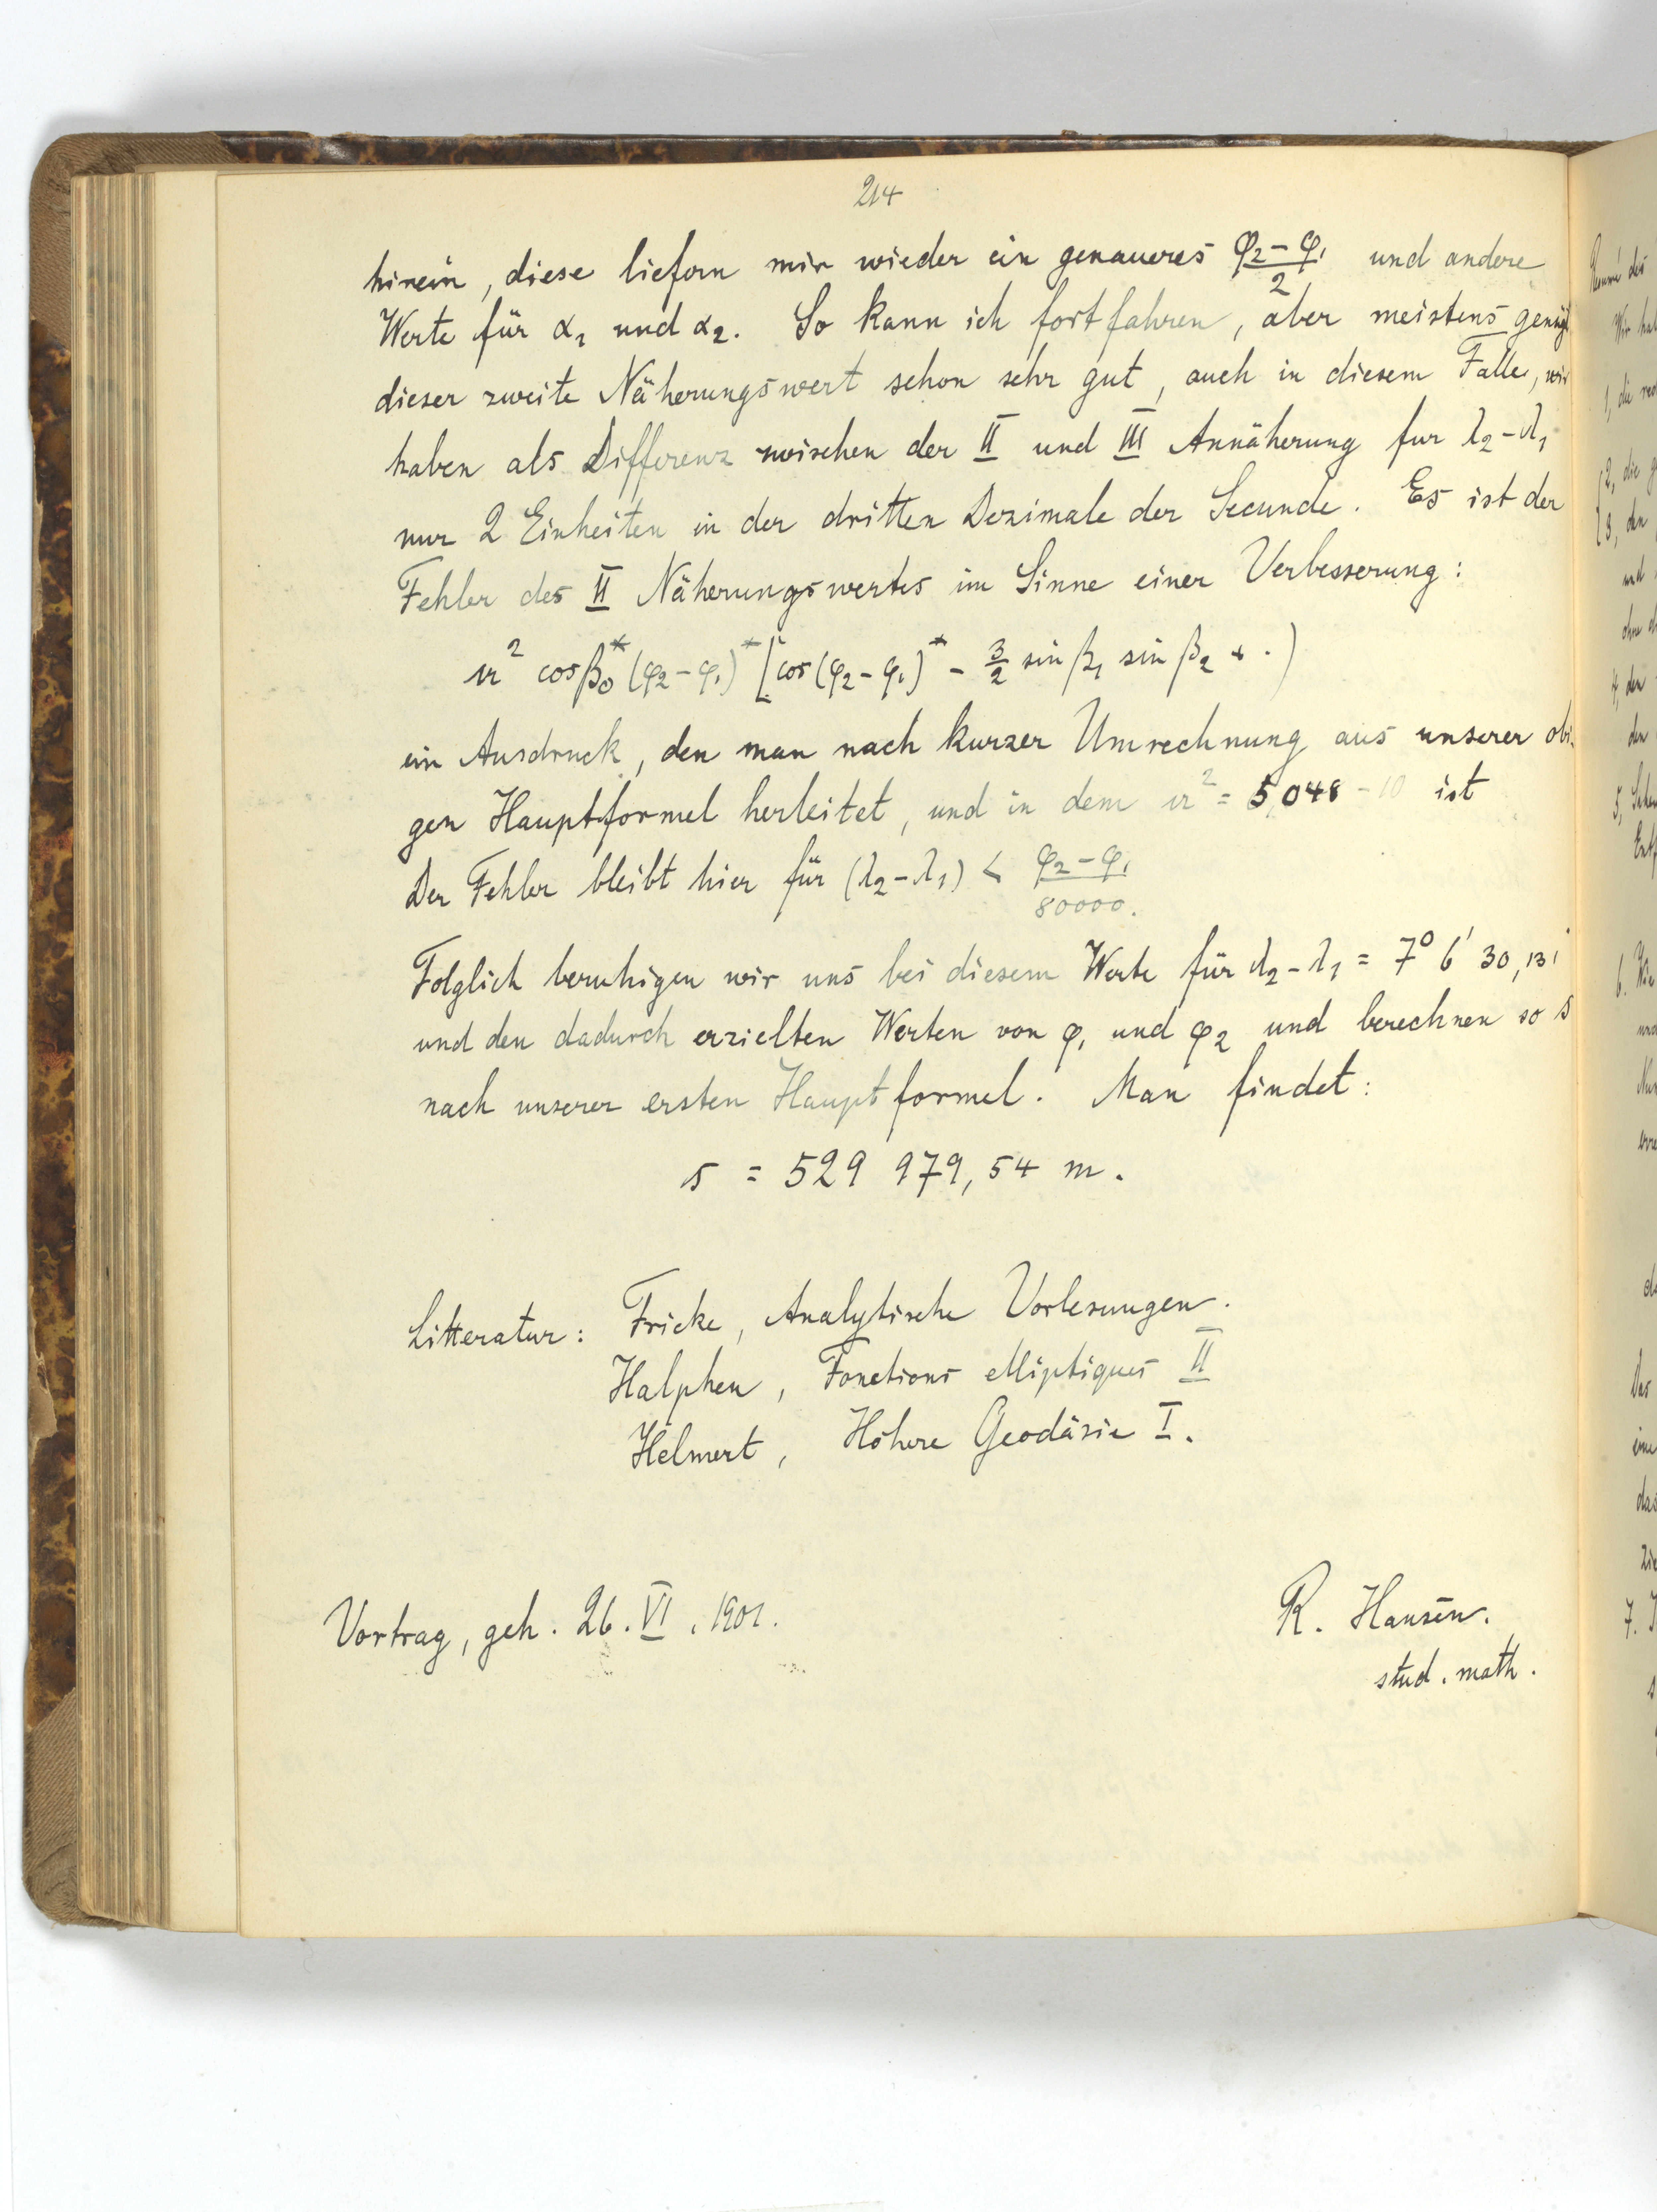 214
hinein, diese liefern mir wieder ein genaueres (φ₂-φ₁)/2 und andere
Werte für α₁ und α₂. So kann ich fortfahren, aber meistens genügt
dieser zweite Näherungswert schon sehr gut, auch in diesem Falle, wir
haben als Differenz zwischen der II und III Annäherung fur λ₂-λ₁
nur 2 Einheiten in der dritten Dezimale der Secunde. Es ist der
Fehler des II Näherungswertes im Sinne einer Verbesserung:
n² cosβ₀* (φ₂-φ₁)* [cos(φ₂-φ₁)* - 3/2 sin β₁ sin β₂ + ·)
ein Ausdruck, den man nach kurzer Umrechnung aus unserer obi-
gen Hauptformel herleitet, und in dem n² = 5,048 - 10 ist
Der Fehler bleibt hier für (λ₂-λ₁) < (φ₂-φ₁)/80000.
Folglich beruhigen wir uns bei diesem Werte für λ₂-λ₁ = 7° 6' 30,131
und den dadurch erzielten Werten von φ₁ und φ₂ und berechnen so s
nach unserer ersten Hauptformel. Man findet:
s = 529 979,54 m.
Litteratur: Fricke, Analytische Vorlesungen.
Halphen, Fonctions elliptiques II
Helmert, Höhere Geodäsie I.
Vortrag, geh. 26. VI. 1901.
R. Hansen.
stud. math.